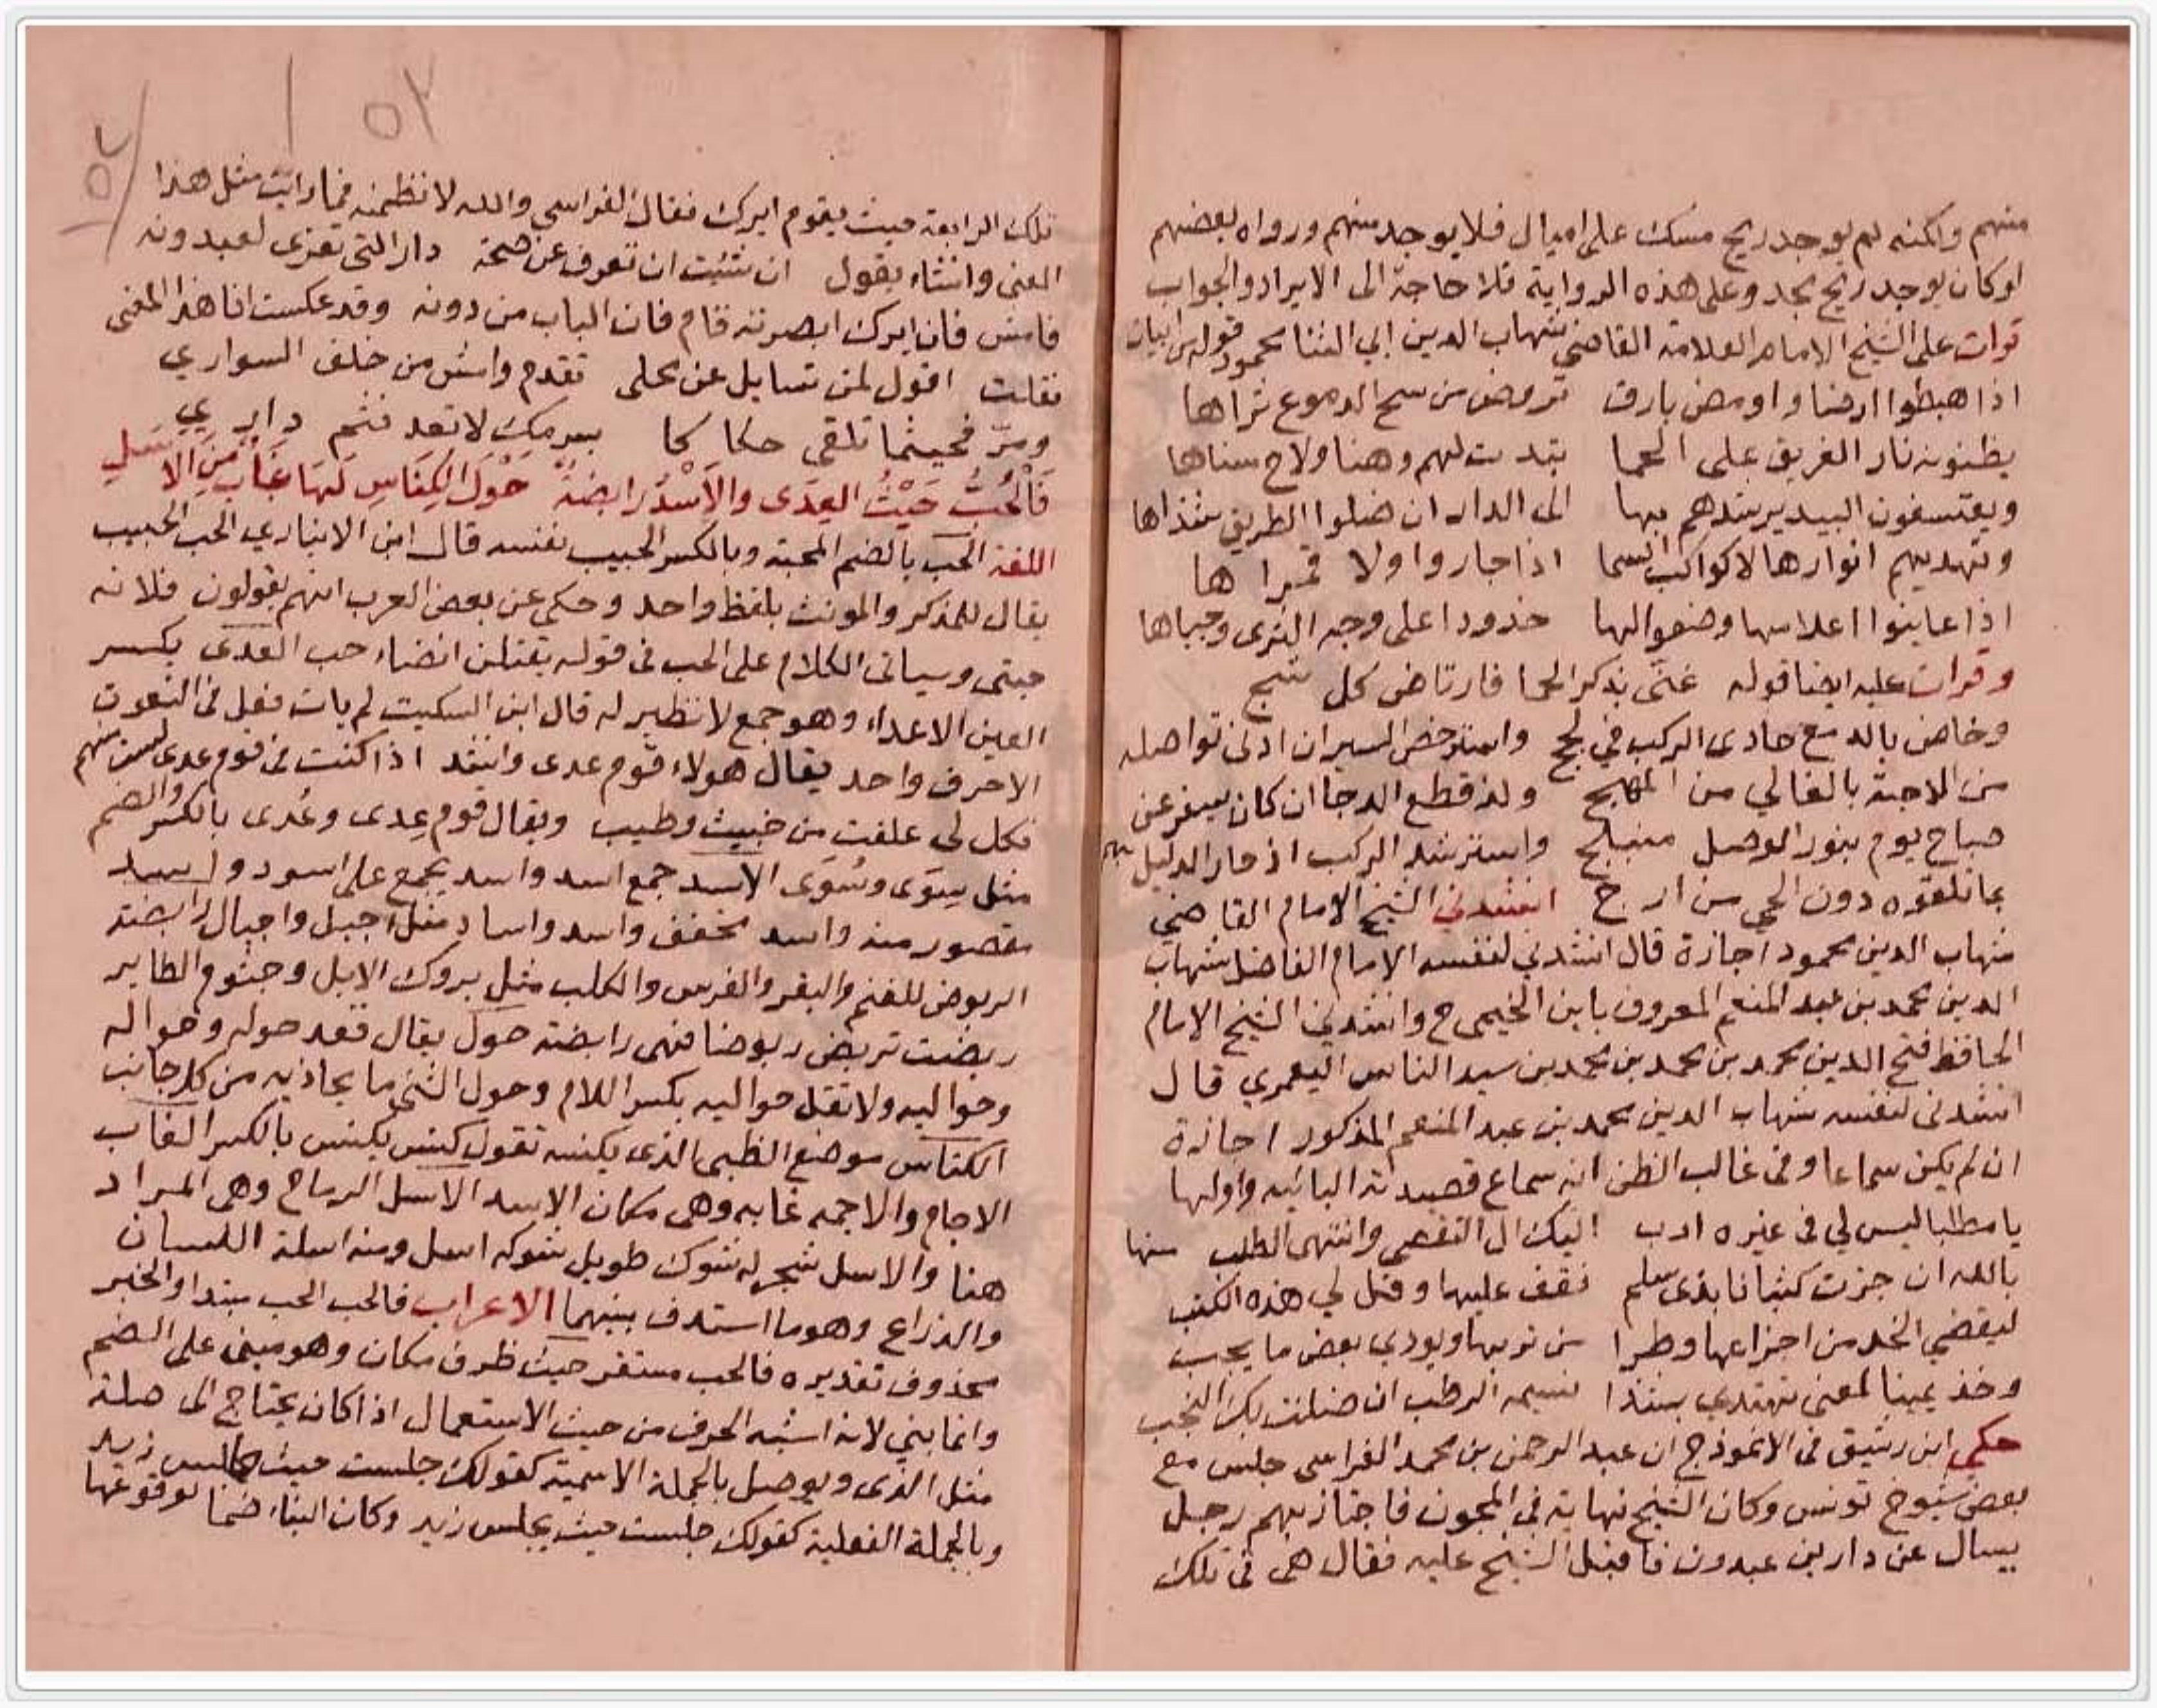 منهم ولكنه لم يوجد ريح مسك على اميال فلا يوجد منهم ورواه بعضهم
او كان يوجد ريح نجد وعلى هذه الرواية فلا حاجة الى الايراد والجواب
قرات على الشيخ الامام العلامة القاضي شهاب الدين ابي الثنا محمود قوله من ابيات
اذا هبطوا ارضا واومض بارق تروض من سح الدموع ثراها
يظنونه نار الفريق على الحما بتدت لهم وهنا ولاح سناها
ويعتسفون البيد يرشدهم بها الى الدار ان ضلوا الطريق شذاها
وتهديهم انوارها لا كواكب السما اذا جاروا ولا قمرا ها
اذا عاينوا اعلامها وضعوا لها خدودا على وجه الثرى وجباها
وقرات عليه ايضا قوله غنى بذكر الحما فارتاض كل شج
وخاض بالدمع حادى الركب في لجج واسترخص السير ان ادنى تواصله
من الاحبة بالغالي من المهج ولذ قطع الدجا ان كان يسفر عن
صباح يوم بنور الوصل منبلج واسترشد الركب اذ حار الدليل بهم
بما تلقوه دون الحي من ار ج انشدني الشيخ الامام القاضي
شهاب الدين محمود اجازة قال انشدني لنفسه الامام الفاضل شهاب
الدين محمد بن عبد المنعم المعروف بابن الخيمى ح وانشدني الشيخ الامام
الحافظ فتح الدين محمد بن محمد بن محمد بن سيد الناس اليعمري قال
انشدنى لنفسه شهاب الدين محمد بن عبد المنعم المذكور اجازة
ان لم يكن سماعا وفى غالب الظن انه سماع قصيدته البائيه واولها
يا مطلبا ليس لي فى غيره ارب اليك ال التقصى وانتهى الطلب منها
بالله ان جزت كثبانا بذى سلم فقف عليها وقل لي هذه الكثب
ليقضي الخد من اجزاعها وطرا من تربها ويودي بعض ما يجب
وخذ يمينا لمغنى تهتدي بشذا نسيمه الرطب ان ضلت بك النجب
حكى ابن رشيق فى الانموذج ان عبد الرحمن بن محمد الفراسى جلس مع
بعض شيوخ تونس وكان الشيخ نهاية في المجون فاجتاز بهم رجل
يسال عن دار بن عبدون فاقبل الشيخ عليه فقال هى فى تلك
٥٢
٥٢
تلك الرابعة حيث يقوم ايرك فقال الفراسي والله لانظمنه فما رايت مثل هذا
المعنى وانشاء يقول ان شئت ان تعرف عن صحة دار التى تعزى لعبدونه
فامش فان ايرك ابصرته قام فان الباب من دونه وقد عكست انا هذا المعنى
فقلت اقول لمن تسايل عن محلى تقدم وامش من خلف السواري
ومر فحيثما تلقى حكا كا ببرمك لا تعد فثم دار ي
فَالْحُبُّ حَيْثُ العِدَى والأُسْدُ رابضةٌ حَوْلَ الكِنَاسِ لَهَا غَابٌ مِنَ الاسَلِ
اللغة الحب بالضم المحبة وبالكسر الحبيب نفسه قال ابن الانباري الحب الحبيب
يقال للمذكر والمونث بلفظ واحد وحكى عن بعض العرب انهم يقولون فلانه
حبتى وسياتى الكلام على الحب فى قوله يقتلن انضاء حب العدى بكسر
العين الاعداء وهو جمع لا نظير له قال ابن السكيت لم يات فعل فى النعوت
الا حرف واحد يقال هولاء قوم عدى وانشد اذا كنت فى قوم عدى لست منهم
فكل لى علفت من خبيث وطيب ويقال قوم عِدى وعُدى بالكسر والضم
مثل سِوَى وسُوَى الاسد جمع اسد واسد يجمع على اسود واسد
مقصور منه واسد مخفف واسد واساد مثل اجبل واجبال رابضة
الربوض للغنم والبقر والفرس والكلب مثل بروك الابل وجثوم الطاير
ربضت تربض ربوضا فهى رابضة حول يقال قعد حوله وحواله
وحواليه ولا تقل حواليه بكسر اللام وحول الشئ ما يحاذيه من كل جانب
الكناس موضع الظبى الذى يكنسه تقول كنس يكنس بالكسر الغاب
الاجام والاجمه غابه وهى مكان الاسد الاسل الرماح وهى المراد
هنا والاسل شجر له شوك طويل شوكه اسل ومنه اسلة اللسان
والذراع وهو ما استدق بينهما الاعراب فالحب الحب مبتدا والخبر
محذوف تقديره فالحب مستقر حيث ظرف مكان وهو مبنى على الضم
وانما بني لانه اشبه الحرف من حيث الاستعمال اذا كان يحتاج الى صلة
مثل الذى ويوصل بالجملة الاسمية كقولك جلست حيث جالس زيد
وبالجملة الفعلية كقولك جلست حيث يجلس زيد وكان البناء ضما لوقوعها